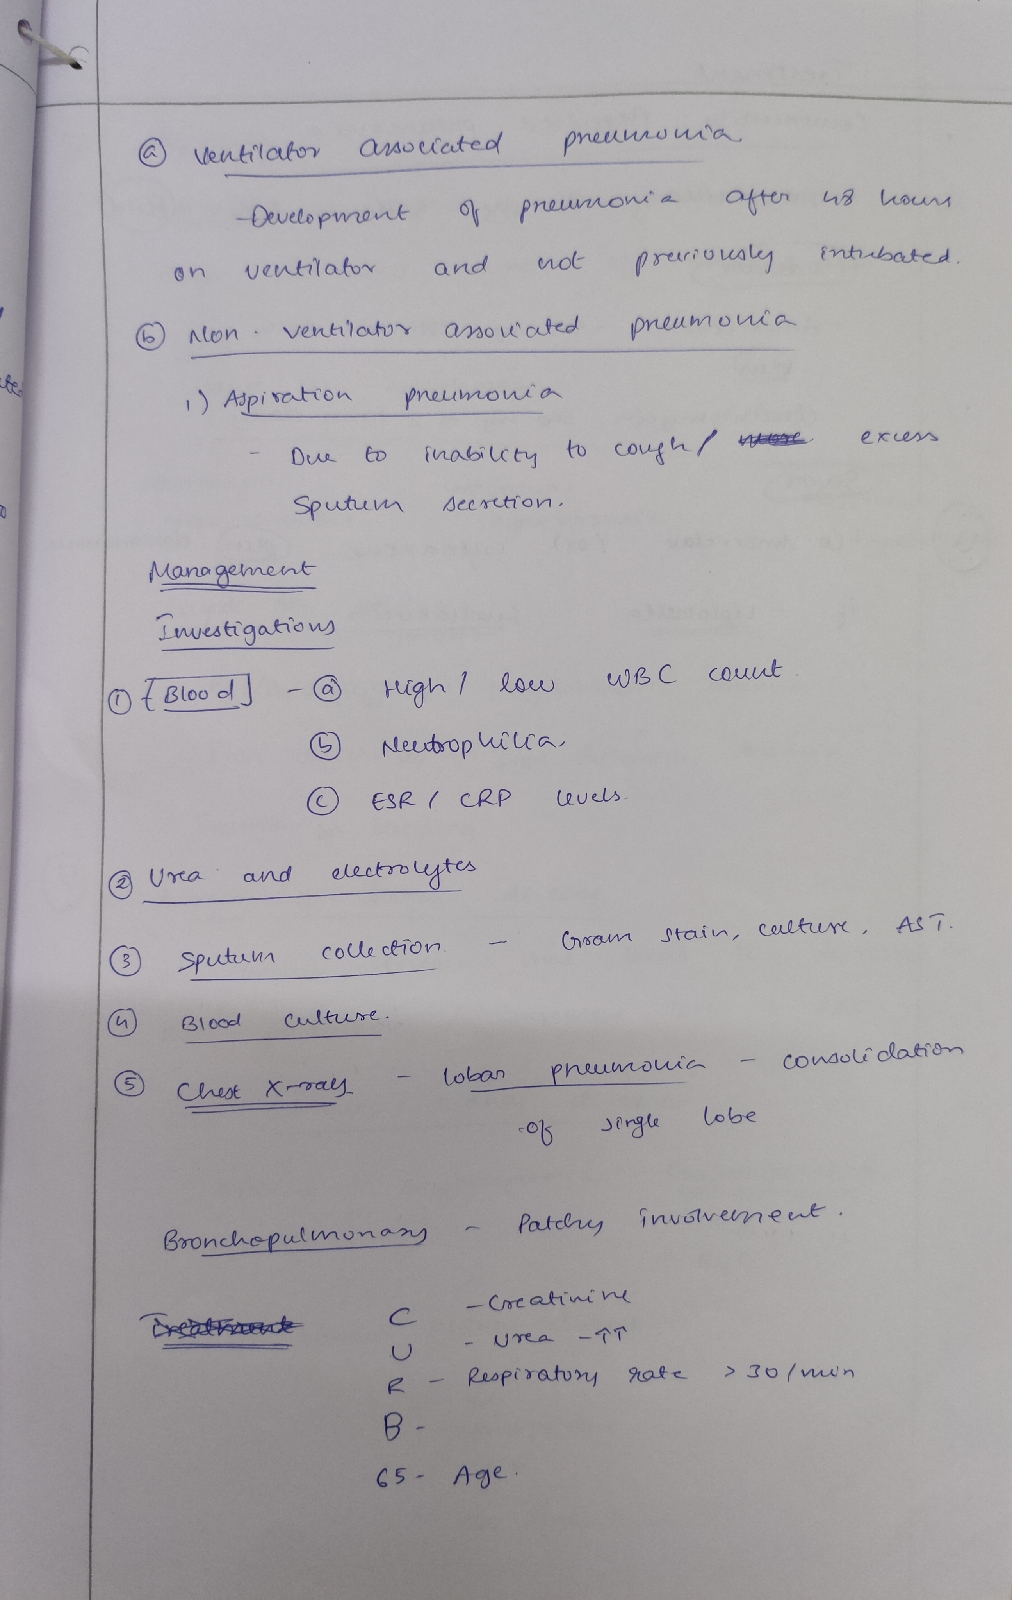 ⓐ Ventilator associated pneumonia
-Development of pneumonia after 48 hours
on ventilator and not previously intubated.
ⓑ Non-ventilator associated pneumonia
1) Aspiration pneumonia
- Due to inability to cough / excess
Sputum secretion.
Management
Investigations
① [Blood] - ⓐ High / low WBC count.
ⓑ Neutrophilia.
ⓒ ESR / CRP levels.
② Urea and electrolytes
③ Sputum collection - Gram stain, culture, AST.
④ Blood culture.
⑤ Chest X-rays - lobar pneumonia - consolidation
of single lobe
Bronchopulmonary - Patchy involvement.
Treatment
C - Creatinine
U - Urea - ↑↑
R - Respiratory rate > 30/min
B -
65 - Age.